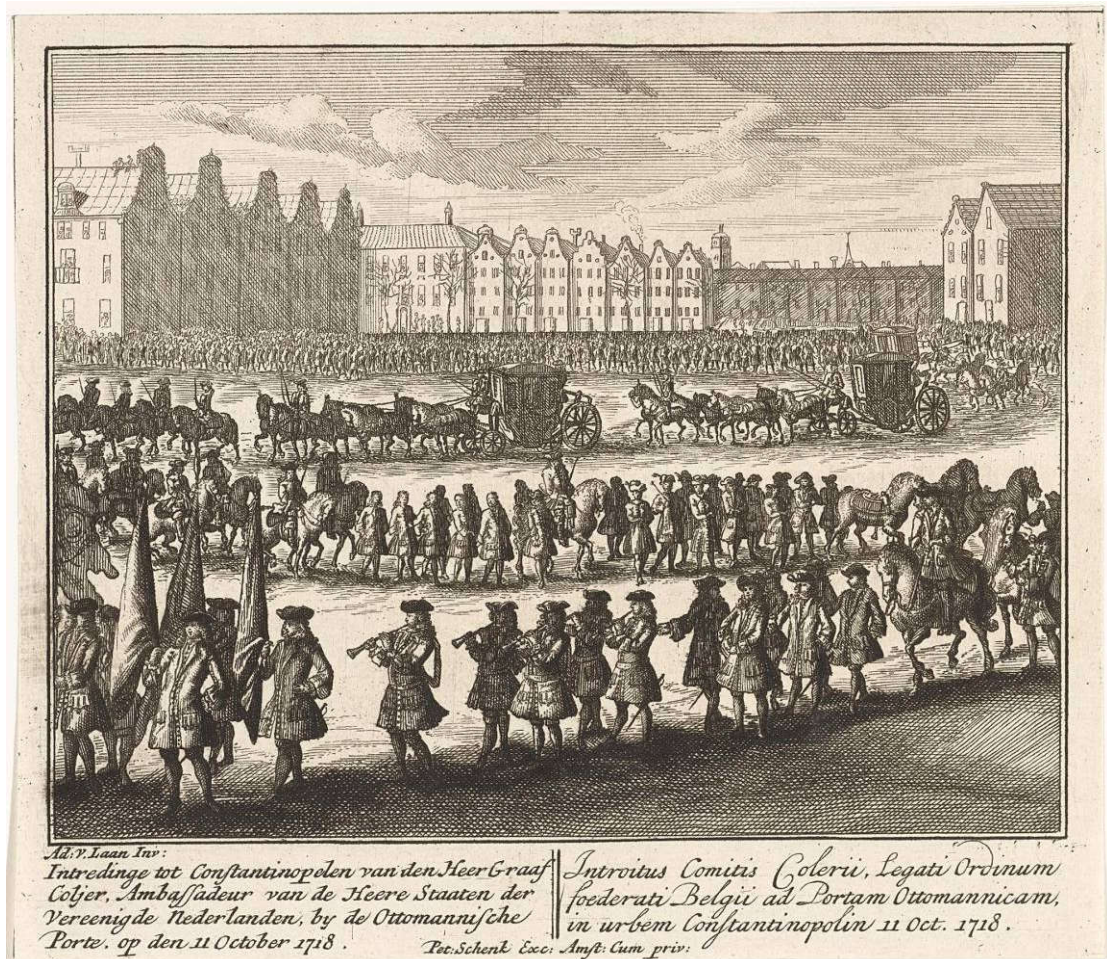 Ad: v. Laan Inv:
Intredinge tot Constantinopelen van den Heer Graaf
Coljer, Ambassadeur van de Heere Staaten der
Vereenigde Nederlanden, by de Ottomannische
Porte. op den 11 October 1718.
Introitus Comitis Colerii, Legati Ordinum
foederati Belgii ad Portam Ottomannicam,
in urbem Constantinopolin 11 Oct. 1718.
Pet: Schenk Exc: Amst: Cum priv: